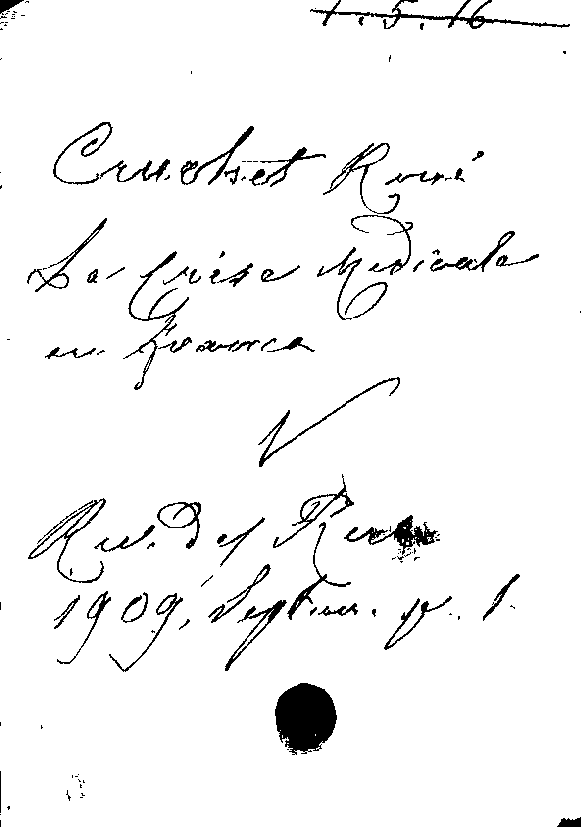 1.5.16
Cruchet René
La Crise Médicale
en France
V
Rev. des Rev.
1909, Septem. p. 1.